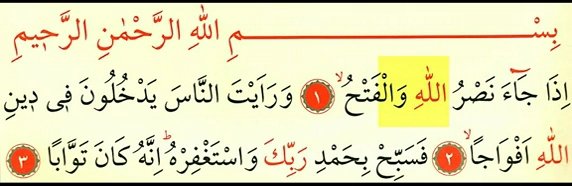 بِسْمِ اللهِ الرَّحْمٰنِ الرَّحٖيمِ
اِذَا جَٓاءَ نَصْرُ اللّٰهِ وَالْفَتْحُۙ ﴿١﴾ وَرَاَيْتَ النَّاسَ يَدْخُلُونَ فٖى دٖينِ
اللّٰهِ اَفْوَاجًاۙ ﴿٢﴾ فَسَبِّحْ بِحَمْدِ رَبِّكَ وَاسْتَغْفِرْهُؕ اِنَّهُ كَانَ تَوَّابًا ﴿٣﴾